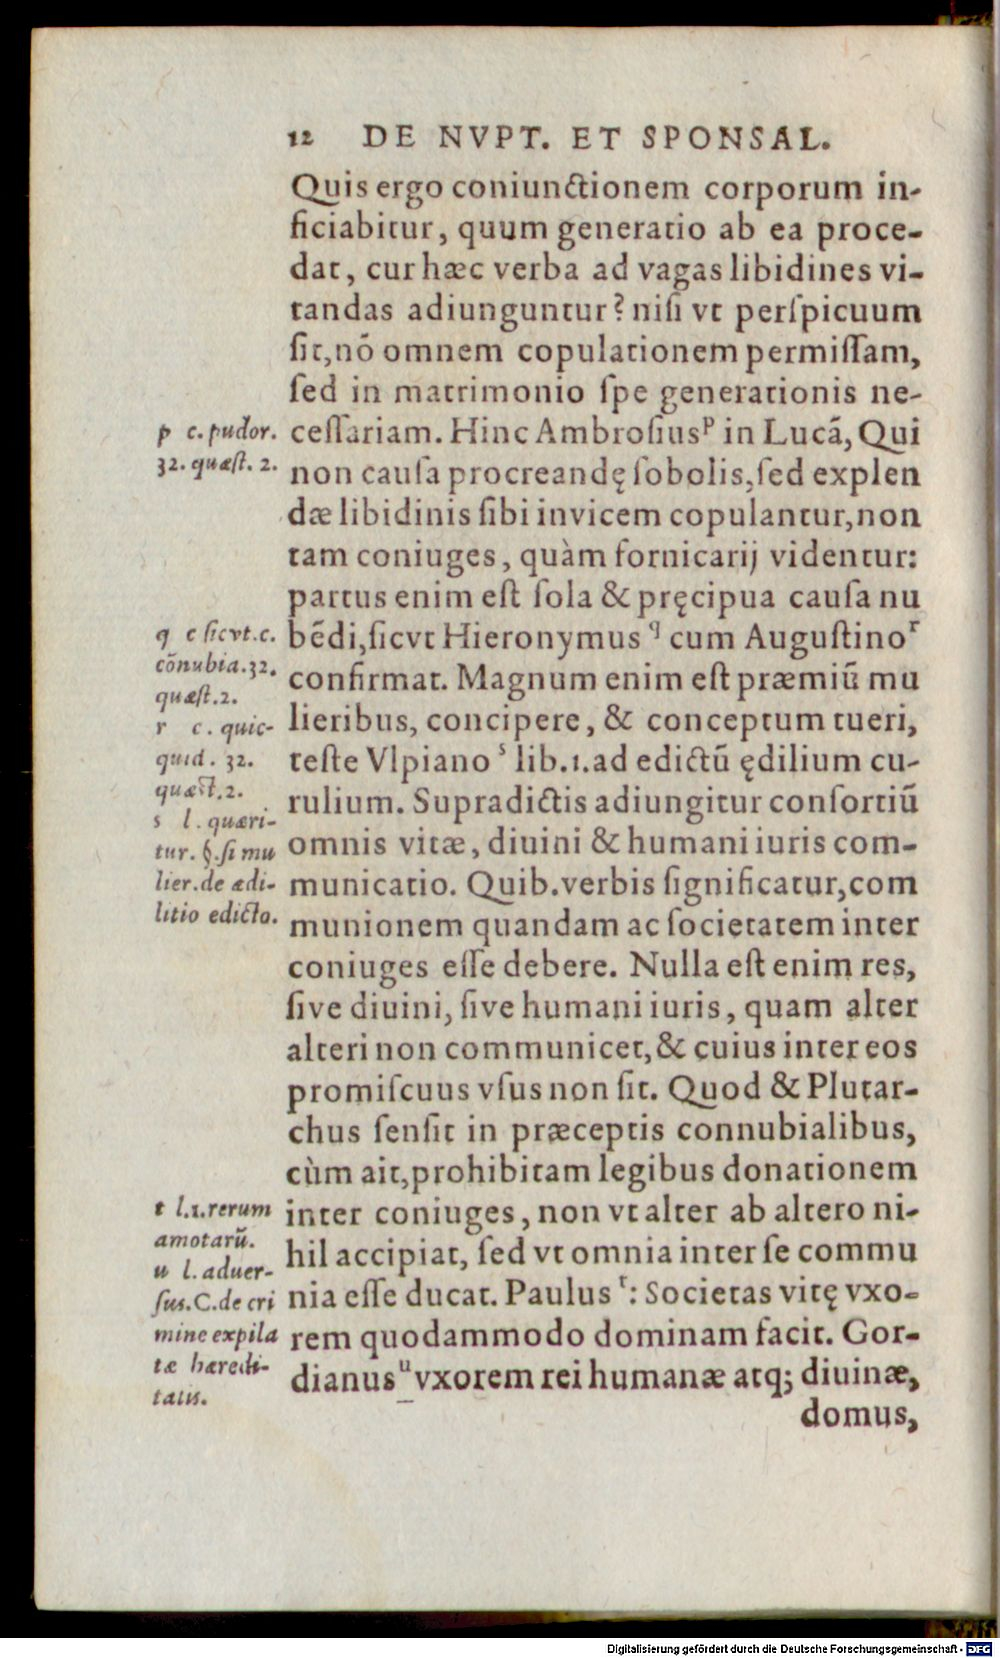 12 DE NVPT. ET SPONSAL.
Quis ergo coniunctionem corporum in-
ficiabitur, quum generatio ab ea proce-
dat, cur hæc verba ad vagas libidines vi-
tandas adiunguntur? niſi vt perſpicuum
ſit, nō omnem copulationem permiſſam,
ſed in matrimonio ſpe generationis ne-
ceſſariam. Hinc Ambroſius p in Lucā, Qui
non cauſa procreandę ſobolis, ſed explen
dæ libidinis ſibi invicem copulantur, non
tam coniuges, quàm fornicarij videntur:
partus enim eſt ſola & pręcipua cauſa nu
bēdi, ſicvt Hieronymus q cum Auguſtino r
confirmat. Magnum enim eſt præmiū mu
lieribus, concipere, & conceptum tueri,
teſte Vlpiano s lib.1. ad edictū ędilium cu-
rulium. Supradictis adiungitur conſortiū
omnis vitæ, diuini & humani iuris com-
municatio. Quib. verbis ſignificatur, com
munionem quandam ac ſocietatem inter
coniuges eſſe debere. Nulla eſt enim res,
ſive diuini, ſive humani iuris, quam alter
alteri non communicet, & cuius inter eos
promiſcuus vſus non ſit. Quod & Plutar-
chus ſenſit in præceptis connubialibus,
cùm ait, prohibitam legibus donationem
inter coniuges, non vt alter ab altero ni-
hil accipiat, ſed vt omnia inter ſe commu
nia eſſe ducat. Paulus t: Societas vitę vxo-
rem quodammodo dominam facit. Gor-
dianus u vxorem rei humanæ atq; diuinæ,
domus,
p c. pudor.
32. quæſt. 2.
q c ſicvt. c.
cōnubia. 32.
quæſt. 2.
r c. quic-
quid. 32.
quæſt. 2.
s l. quæri-
tur. §. ſi mu
lier. de ædi-
litio edicto.
t l.1. rerum
amotarū.
u l. aduer-
ſus. C. de cri
mine expila
tæ hæredi-
tatis.
Digitalisierung gefördert durch die Deutsche Forschungsgemeinschaft - DFG